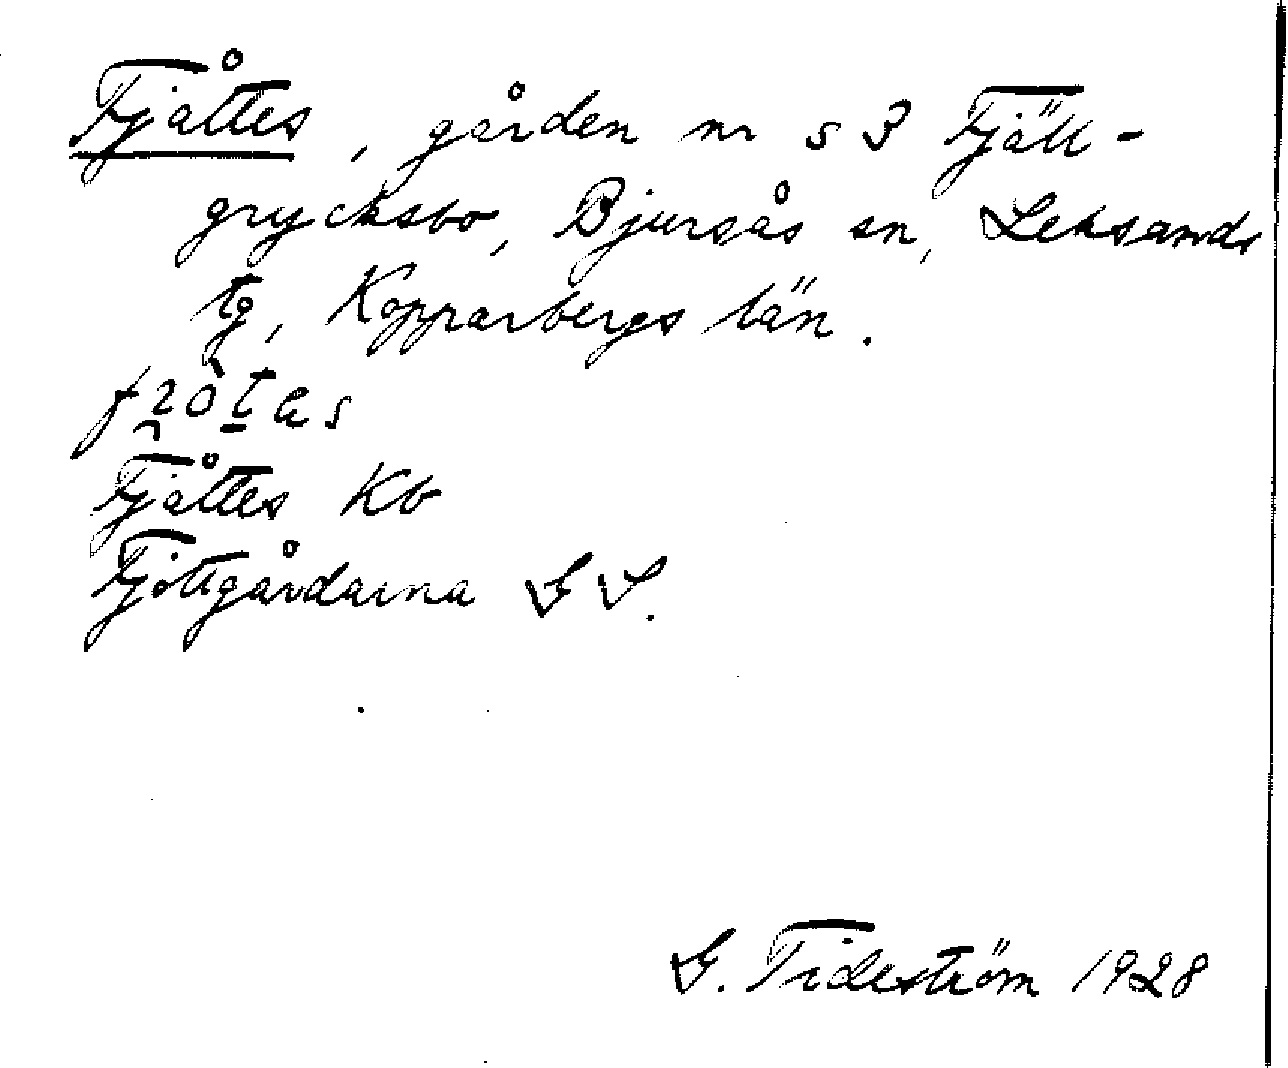 Fjåttes, gården nr 53 Fjäll-
grycksbo, Bjursås sn, Leksands
tg, Kopparbergs län.
Fjåttes Kb
Fjöttgårdarna GS.
G. Tideström 1928